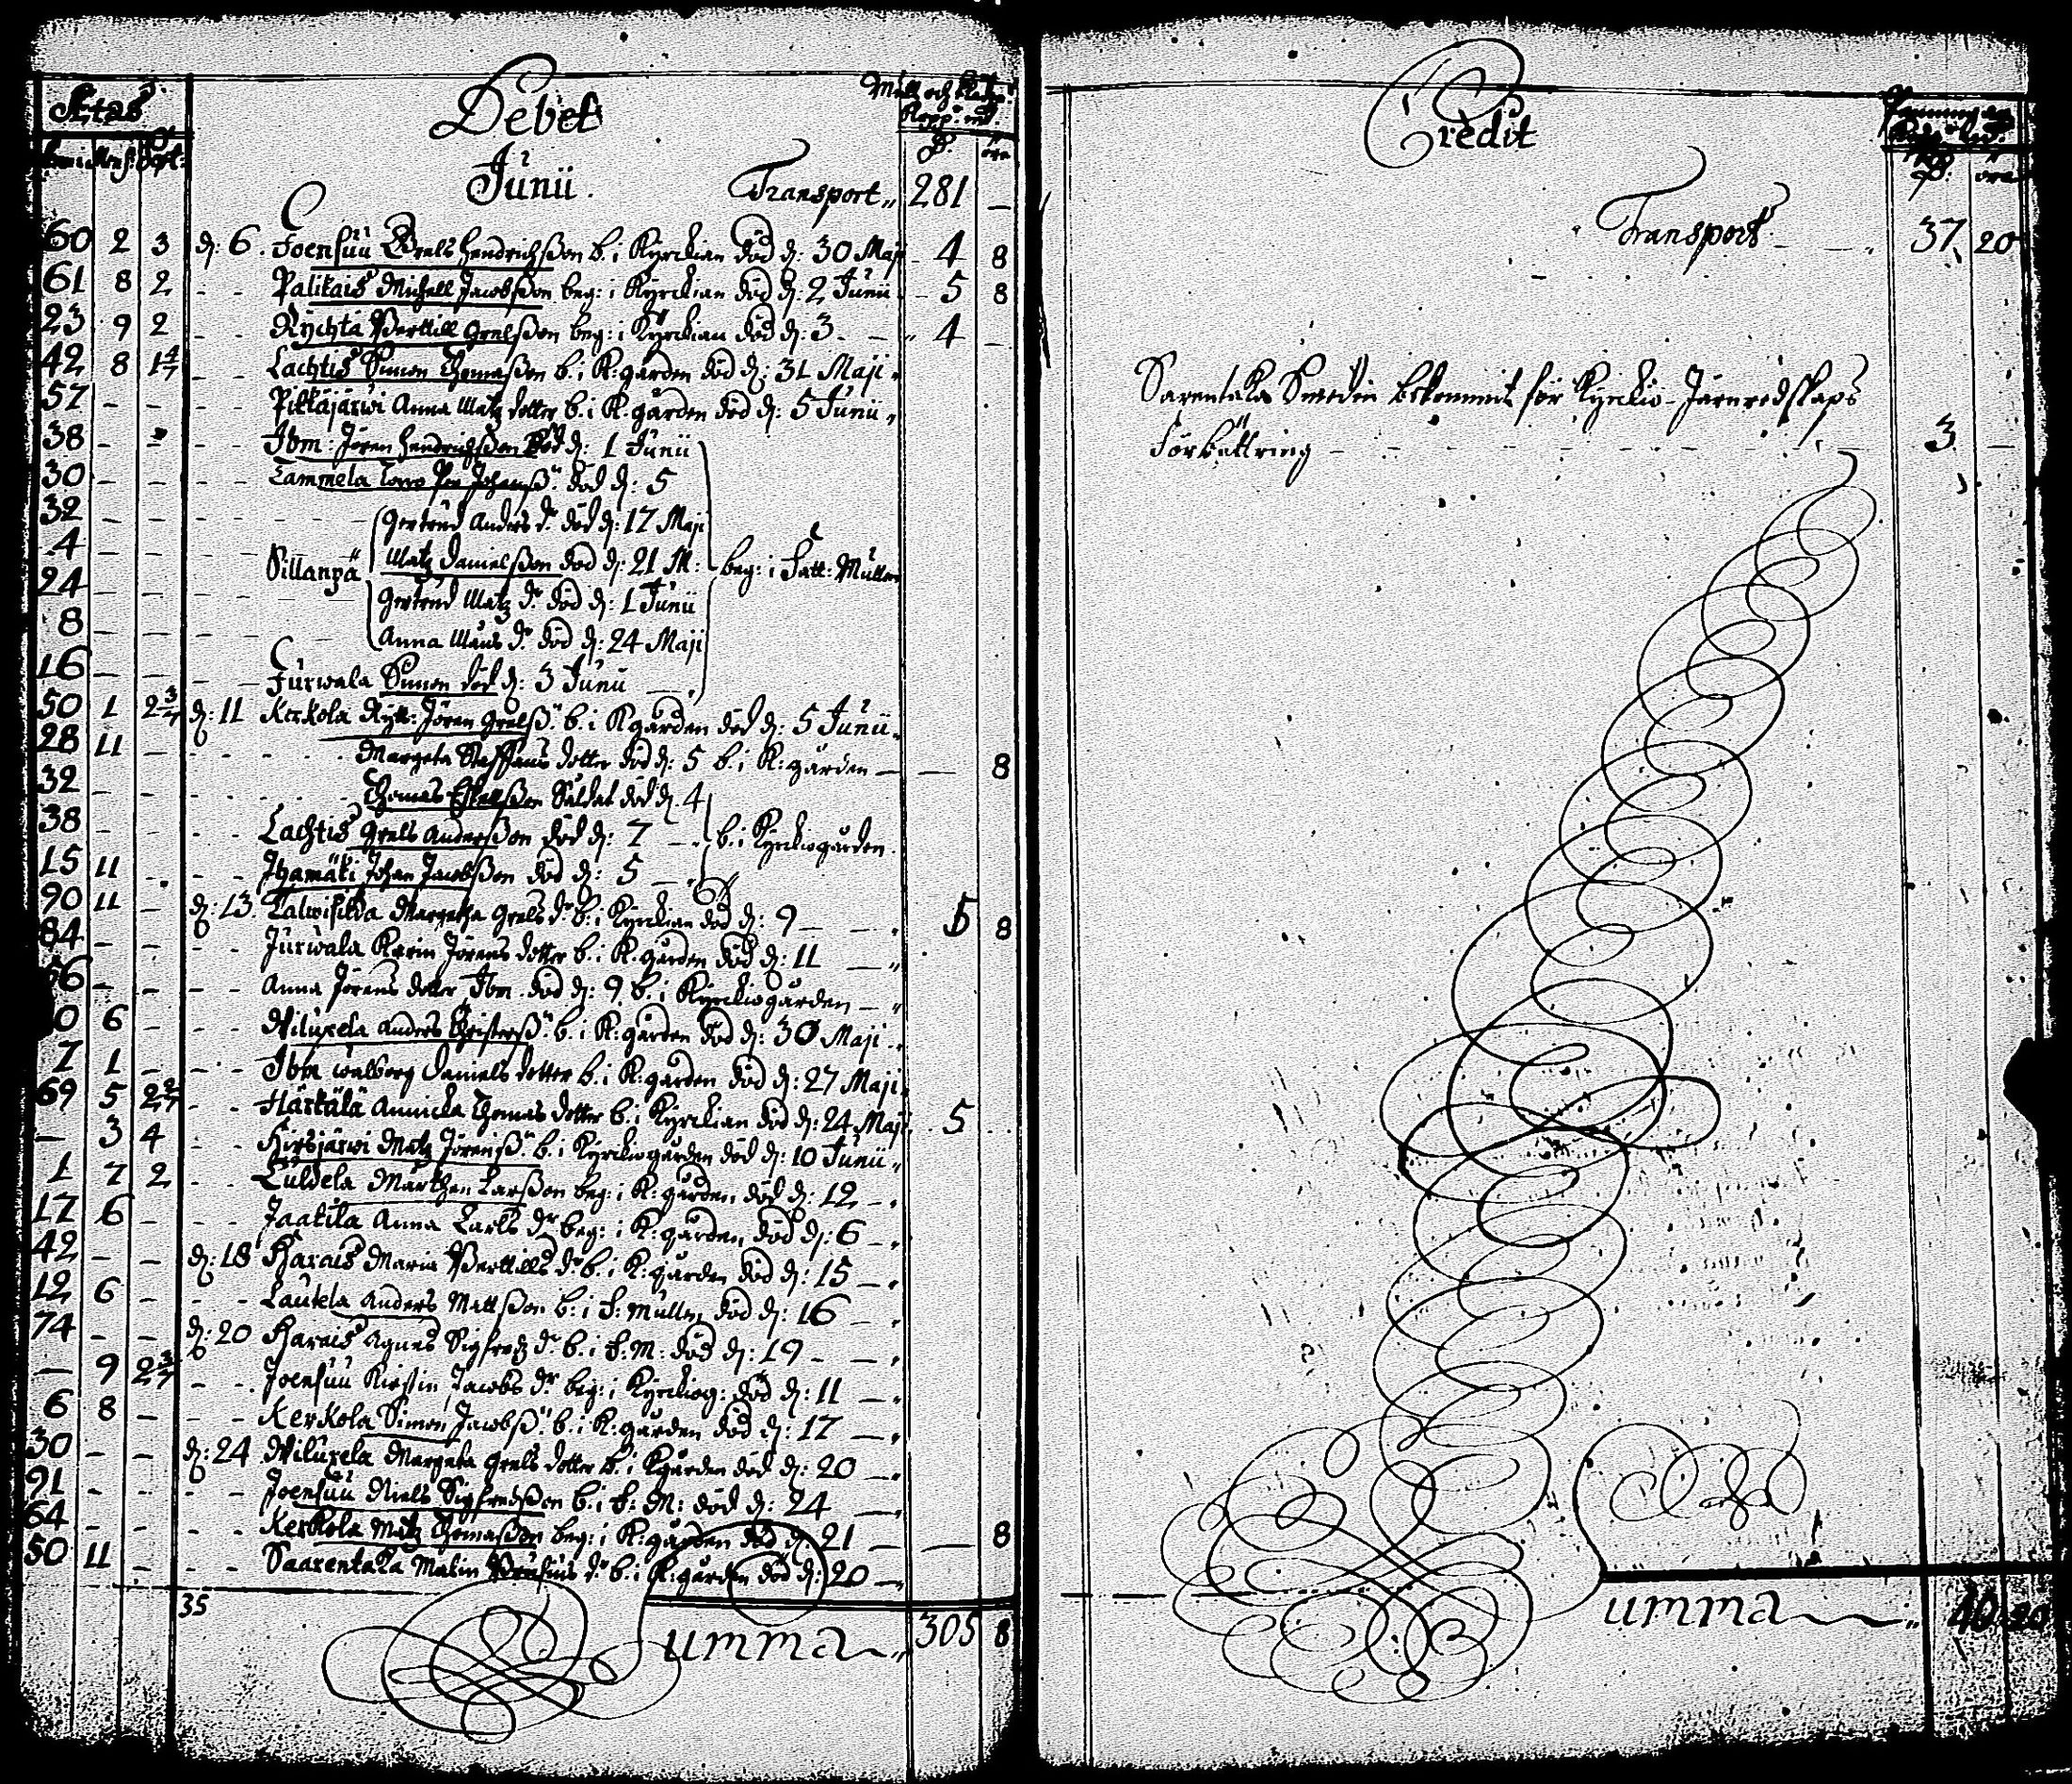 Ætas
Debet
Mull och
Junii. Transport 281 —
60 2 3 d: 6. Joensuu Grels Hendrichsson b. i Kyrckian död d: 30 Maji 4 8
61 8 2 - - Palikais Michell Jacobsson beg: i Kyrckian död d: 2 Junii 5 8
23 9 2 - - Rÿchta Berttill Grelsson beg: i Kyrckian död d: 3 - 4 —
42 8 1 4/7 - - Lachtis Simon Thomasson b. i K:gården död d: 31 Maji
57 - - Pitkäjärwi Anna Matz dotter b. i K.gården död d: 5 Junii
38 - Ibm: Jören Hendrichsson död d: 1 Junii
30 - - Lammela Per Johanss. död d: 5
32 - - Gertrud Anders dr. död d: 17 Maji
4 - - Sillanpä Matz Danielsson död d: 21 M: beg: i Fatt: Mullen
24 - - Gertrud Matz dr. död d: 1 Junii
8 - - Anna Mans dr. död d: 24 Maji
16 - - Jurwala Simon död d: 3 Junii
50 1 2 3/7 d: 11 Kerkola Rytt: Jören Grelss. b. i Kgården död d: 5 Junii
28 11 - Margeta Staffans dotter död d: 5 b. i K:gården — 8
32 - - Thomas Eskellsson Saldat död d. 4
38 - - Lachtis Grels Andersson död d: 7 - b. i Kyrckiogården
15 11 - Ihamäki Johan Jacobsson död d: 5
90 11 - d: 13. Talwisilda Margetha Grels dr. b. i Kyrckian död d: 9 5 8
84 - - Jurwala Karin Jörens dotter b. i K.gården död d: 11
Anna Jörens dotter Ibm. död d: 9 b. i Kyrckiogården
6 - Wiluxela Anders Christerss. b. i K:gården död d: 30 Maji
7 1 - Ibm Walborg Daniels dotter b. i K:gården död d: 27 Maji
69 5 2 2/7 - - Härkälä Annicka Thomas dotter b. i Kyrckian död d: 24 Maji 5
— 3 4 - - Hirsjärwi Matz Jörenss. b. i Kyrckiogården död d: 10 Junii
1 7 2 - - Luldela Märthen Larsson beg: i K:gården död d: 12
17 6 - - Jaakila Anna Carls dr. beg: i K:gården död d: 6
42 - - d: 18 Harais Maria Berttills dr. b. i K:gården död d: 15
12 6 - - Laukela Anders Mattsson b: i F: Mullen död d: 16
74 - - d: 20 Harais Agnes Sigfredz dr. b. i F: M: död d: 19
— 9 2 3/7 - - Joensuu Kirstin Jacobs dr. beg: i Kyrckiog: död d: 11
6 8 - - Kerkola Simon Jacobss. b. i K:gården död d: 17
30 - - d: 24 Wiluxela Margeta Grels dotter b. i Kgården död d: 20
91 - - Joensuu Niels Sigfredsson b. i F: M: död d: 24
64 - - Kerkola Matz Thomasson beg: i K:gården död d: 21 — 8
50 11 - - Saarentaka Malin dr. b. i K:gården död d: 20
35
Summa 305 8
Credit
Transport 37 20
Sarentaka Smedin bekommit för Kyrckio-Järnredskaps
förbättring 3 —
Summa 40 20